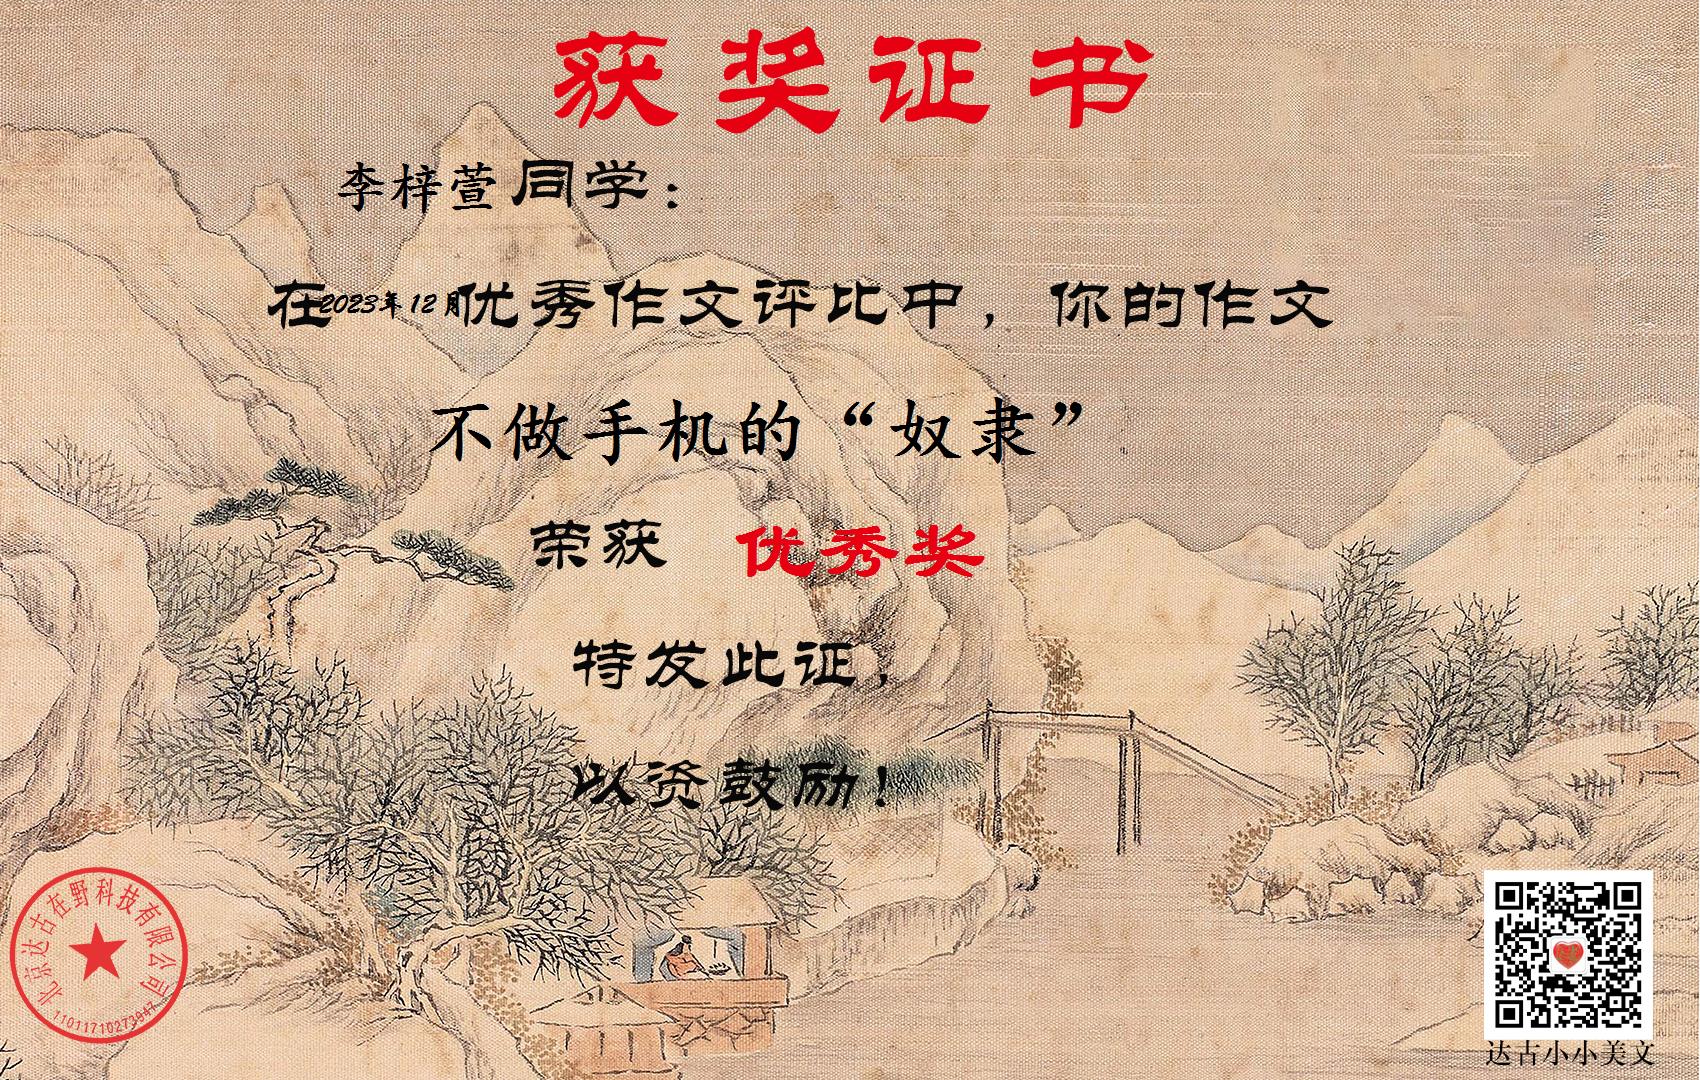 获奖证书
李梓萱同学：
在2023年12月优秀作文评比中，你的作文
不做手机的“奴隶”
荣获 优秀奖
特发此证，
以资鼓励！
北京达古在野科技有限公司
11011710273947
达古小小美文